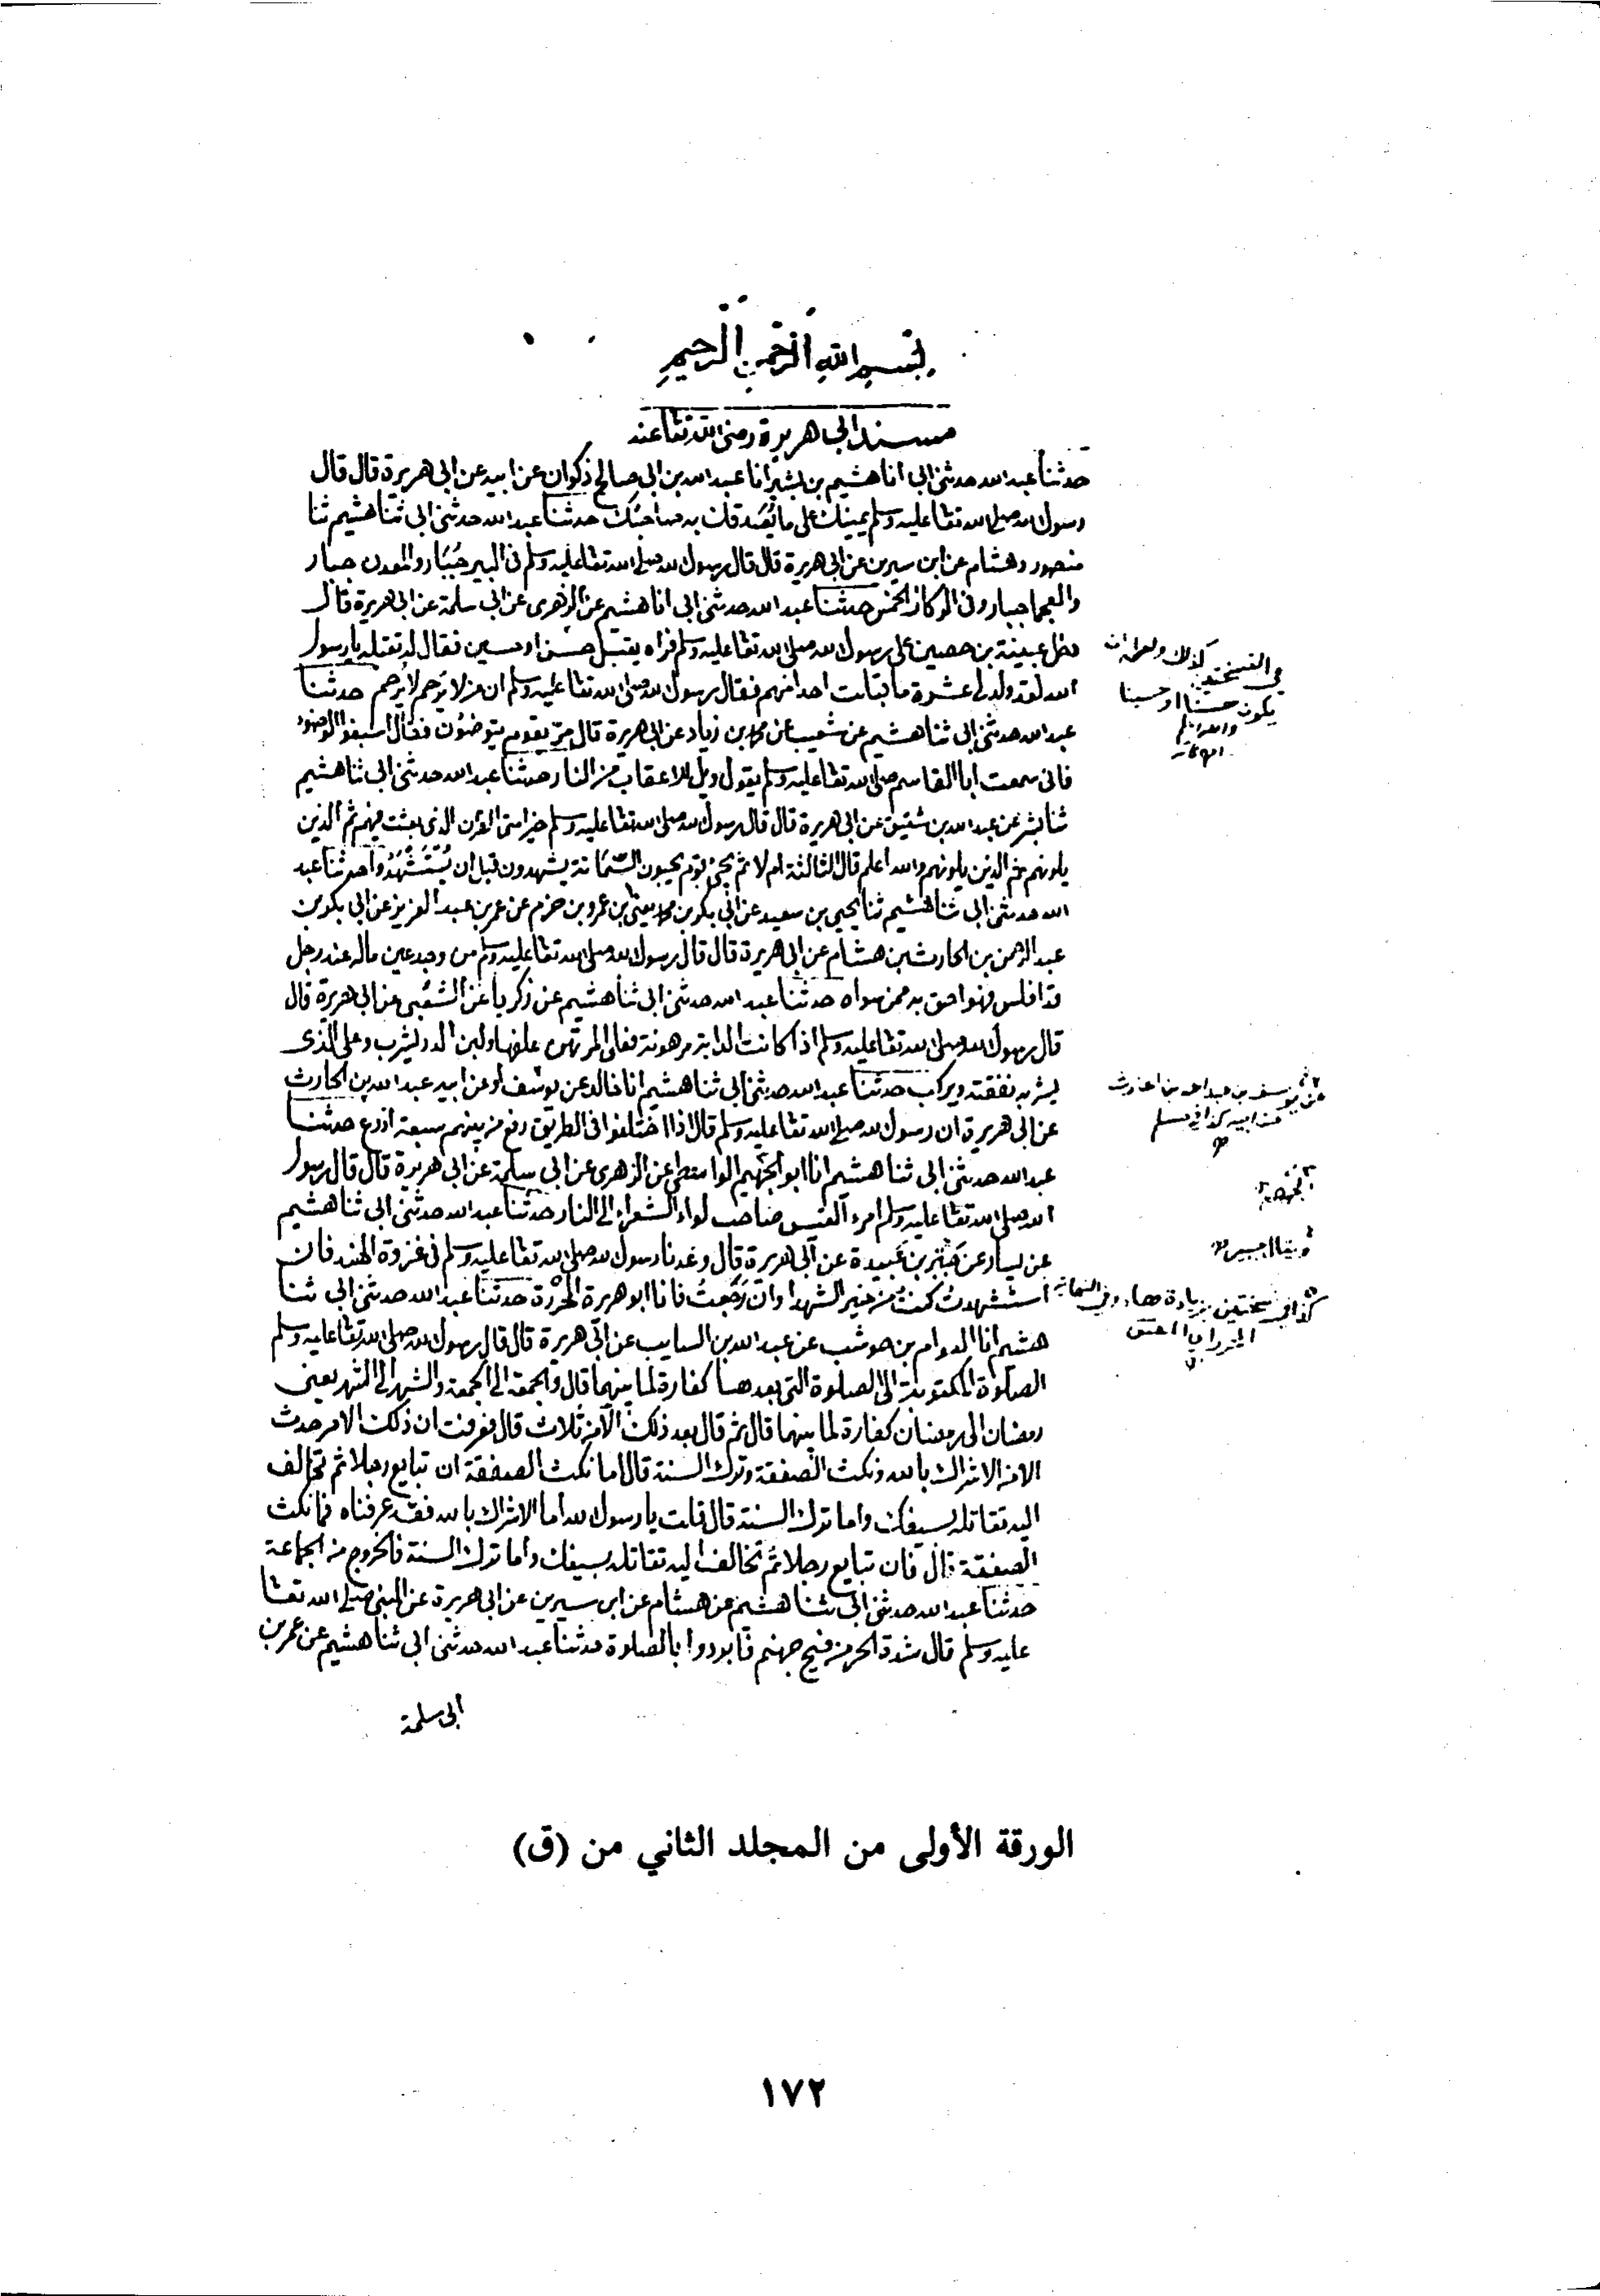 بسم الله الرحمن الرحيم
مسند ابى هريرة رضى الله تعا عنه
حدثنا عبد الله حدثنى ابى انا هشيم بن بشير انا عبد الله بن ابى صالح ذكوان عن ابيه عن ابى هريرة قال قال
رسول الله صلى الله تعا عليه وسلم يمينك على ما يُصدقك به صاحبك حدثنا عبد الله حدثنى ابى ثنا هشيم ثنا
منصور وهشام عن ابن سيرين عن ابى هريرة قال قال رسول الله صلى الله تعا عليه وسلم فى البير جُبَار والمعدن جبار
والعجما جبار وفى الركاز الخمس حدثنا عبد الله حدثنى ابى انا هشيم عن الزهرى عن ابى سلمة عن ابى هريرة قال
دخل عيينة بن حصين على رسول الله صلى الله تعا عليه وسلم فراه يقبل حسنا او حسين فقال له تقبله يا رسول
الله لقد ولد لى عشرة ما قبلت احدا منهم فقال رسول الله صلى الله تعا عليه وسلم ان من لا يَرحم لا يُرحم حدثنا
عبد الله حدثنى ابى ثنا هشيم عن شعيب عن محمد بن زياد عن ابى هريرة قال مرّ بقوم يتوضئون فقال اسبغوا الوضوء
فانى سمعت ابا القاسم صلى الله تعا عليه وسلم يقول ويل للاعقاب من النار حدثنا عبد الله حدثنى ابى ثنا هشيم
ثنا بشر عن عبد الله بن شقيق عن ابى هريرة قال قال رسول الله صلى الله تعا عليه وسلم خير امتى القرن الذى بعثت فيهم ثم الذين
يلونهم ثم الذين يلونهم والله اعلم قال الثالثة ام لا ثم يجئ قوم يحبون السَّمَانة يشهدون قبل ان يُسْتَشْهَدُوا حدثنا عبد
الله حدثنى ابى ثنا هشيم ثنا يحيى بن سعيد عن ابى بكر بن محمد يعنى بن عمرو بن حزم عن عمر بن عبد العزيز عن ابى بكر بن
عبد الرحمن بن الحارث بن هشام عن ابى هريرة قال قال رسول الله صلى الله تعا عليه وسلم من وجد عين ماله عند رجل
قد افلس فهو احق به ممن سواه حدثنا عبد الله حدثنى ابى ثنا هشيم عن زكريا عن الشعبى عن ابى هريرة قال
قال رسول الله صلى الله تعا عليه وسلم اذا كانت الدابة مرهونة فعلى المرتهن علفها ولبن الدر يشرب وعلى الذى
يشربه نفقته ويركب حدثنا عبد الله حدثنى ابى ثنا هشيم انا خالد عن يوسف او عن ابيه عبد الله بن الحارث
عن ابى هريرة ان رسول الله صلى الله تعا عليه وسلم قال اذا اختلفوا فى الطريق رفع من بينهم سبعة اذرع حدثنا
عبد الله حدثنى ابى ثنا هشيم انا ابو الجهيم الواسطى عن الزهرى عن ابى سلمة عن ابى هريرة قال قال رسول
الله صلى الله تعا عليه وسلم امرء القيس صاحب لواء الشعراء الى النار حدثنا عبد الله حدثنى ابى ثنا هشيم
عن سيار عن جَبْر بن عَبيدة عن ابى هريرة قال وعدنا رسول الله صلى الله تعا عليه وسلم فى غزوة الهند فان
استشهدتُ كنتُ من خير الشهدا وان رَجَعتُ فانا ابو هريرة المحررة حدثنا عبد الله حدثنى ابى ثنا
هشيم انا العوام بن حوشب عن عبد الله بن السايب عن ابى هريرة قال قال رسول الله صلى الله تعا عليه وسلم
الصلوة المكتوبة الى الصلوة التى بعدها كفارة لما بينهما قال والجمعة الى الجمعة والشهر الى الشهر يعنى
رمضان الى رمضان كفارة لما بينهما قال ثم قال بعد ذلك الا من ثلاث قال فعرفت ان ذلك الامر حدث
الا من الاشراك بالله ونكث الصفقة وترك السنة قال اما نكث الصفقة ان تبايع رجلا ثم تخالف
اليه تقاتله بسيفك واما ترك السنة قال قلت يا رسول الله اما الاشراك بالله فقد عرفناه فما نكث
الصفقة قال فان تبايع رجلا ثم تخالف اليه تقاتله بسيفك واما ترك السنة فالخروج من الجماعة
حدثنا عبد الله حدثنى ابى ثنا هشيم عن هشام عن ابن سيرين عن ابى هريرة عن النبى صلى الله تعا
عليه وسلم قال شدة الحر من فيح جهنم فابردوا بالصلوة حدثنا عبد الله حدثنى ابى ثنا هشيم عن عمر بن
ابى سلمة
كذلك
فى النسختين
يكون حسنا او حسينا
عن يوسف بن عبد الله بن الحارث
عن ابيه كذا فى مسلم
كذا فى نسختين بزيادة هاء وفى
الورقة الأولى من المجلد الثاني من (ق)
١٧٢